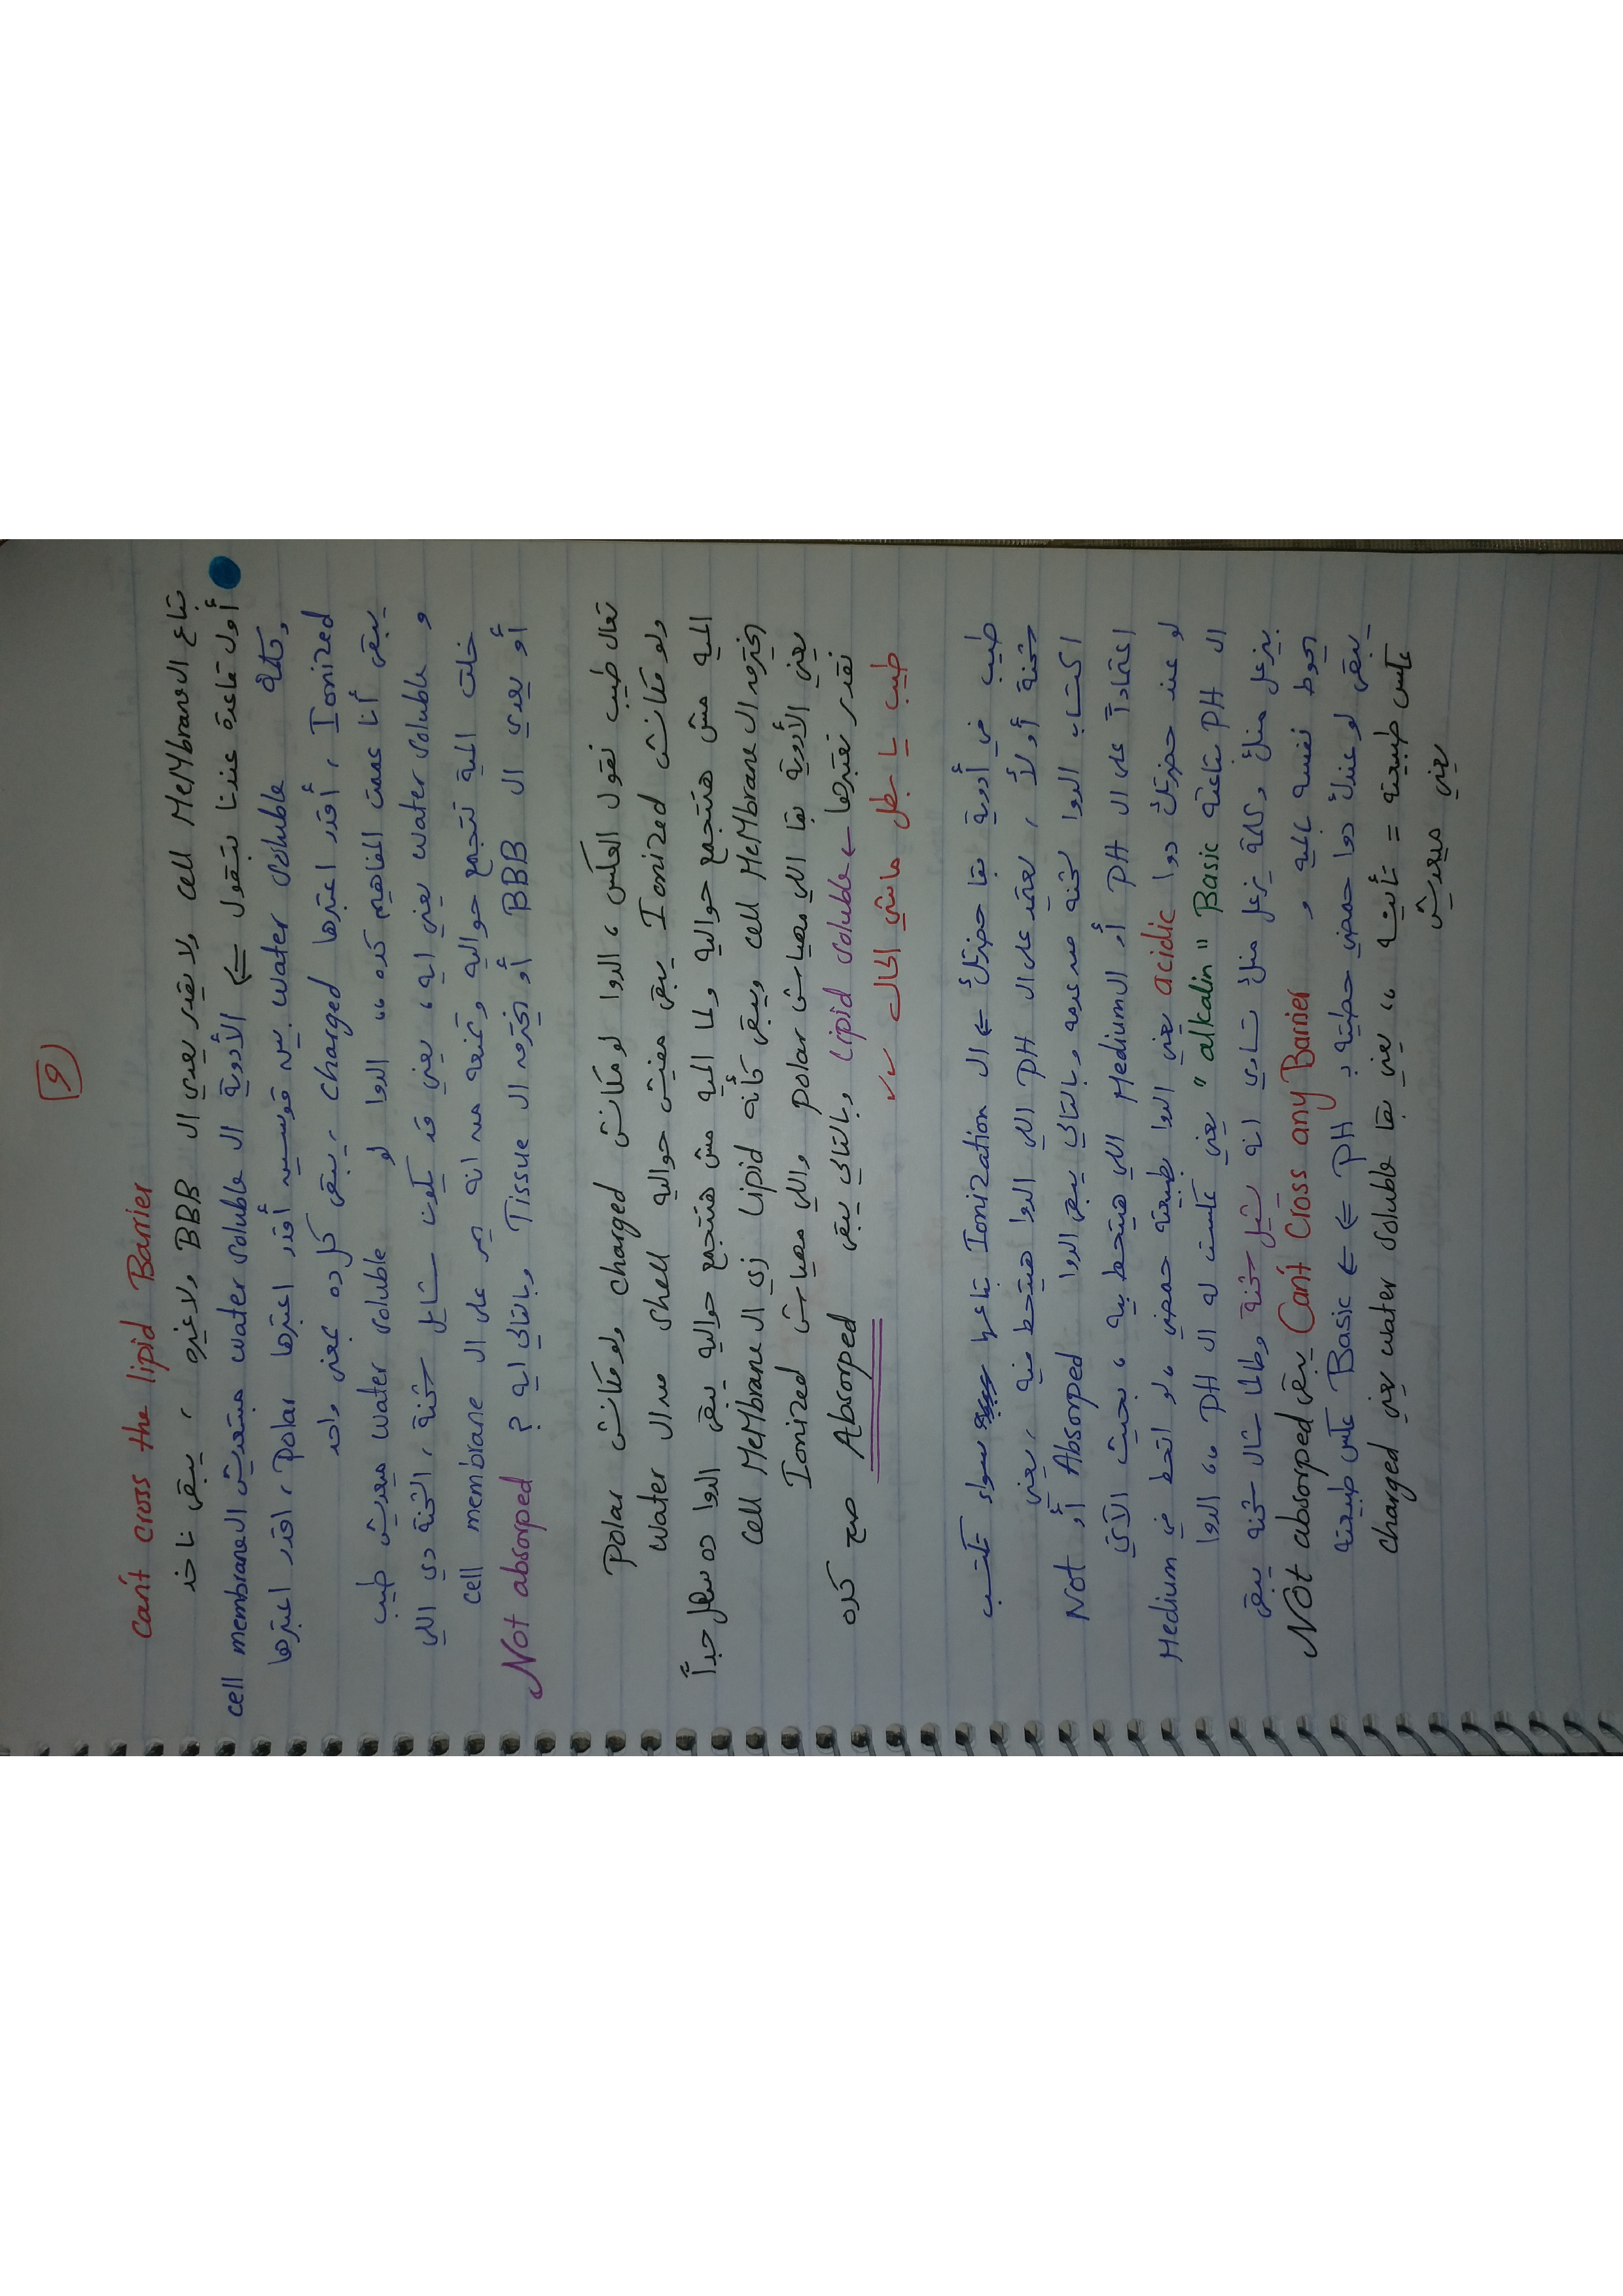 9
تباع ال cell MeMbrane ولا يقدر يعدي ال BBB ولا غيره ، يبقى ناخد can't cross the lipid Barrier
أول قاعدة عندنا بتقول ⇐ الأدوية ال water soluble مبتعديش ال cell membrane
وكلمة water soluble بين قوسين أقدر اعتبرها Polar ، اقدر اعتبرها
Ionized ، أقدر اعتبرها charged ، يبقى كل ده بمعنى واحد
يبقى أنا عممت المفاهيم كده ،، الدوا لو water soluble ميعديش طيب
و water soluble يعني ايه ، يعني قد يكون شايل شحنة ، الشحنة دي اللي
خلت المية تتجمع حواليه وتمنعه من انه يمر على ال cell membrane
أو يعدي ال BBB أو يخترق ال Tissue وبالتالي ايه ؟ Not absorped
تعال طيب نقول العكس ، الدوا لو مكانش charged ولو مكانش Polar
ولو مكانش Ionized يبقى مفيش حواليه shell من ال water
المية مش هتتجمع حواليه ولما المية مش هتتجمع حواليه يبقى الدوا ده سهل جداً
يخترق ال cell MeMbrane ويبقى كأنه Lipid زي ال cell MeMbrane
يعني الأدوية بقا اللي مهياش polar واللي مهياش Ionized
نقدر نعتبرها ← Lipid soluble وبالتالي يبقى Absorped صح كده
طيب يا بطل ماشي الحال
طيب في أدوية بقا حضرتك ⇐ ال Ionization بتاعها سواء تكتسب
شحنة أو لأ ، يعتمد على ال PH اللي الدوا هيتحط فيه ، يعني
اكتساب الدوا لشحنه من عدمه وبالتالي يبقى الدوا Absorped أو Not
اعتماداً على ال PH أو ال Medium اللي هيتحط بيه ، بحيث الآتي
لو عند حضرتك دوا acidic يعني الدوا بطبيعته حمضي ، لو اتحط في Medium
ال PH بتاعته Basic " alkalin " يعني عكست له ال PH ،، الدوا
بيزعل منك وكلمة يزعل منك تساوي انه يشيل شحنة وطالما شال شحنه يبقى
يحوط نفسه بالمية و Can't Cross any Barrier يبقى Not absorped
يبقى لو عندك دوا حمضي حطيته بـ PH ⇐ ⇐ Basic عكس طبيعته
عكس طبيعته = تأنيه ،، يعني بقا water soluble يعني charged
يعني ميعديش